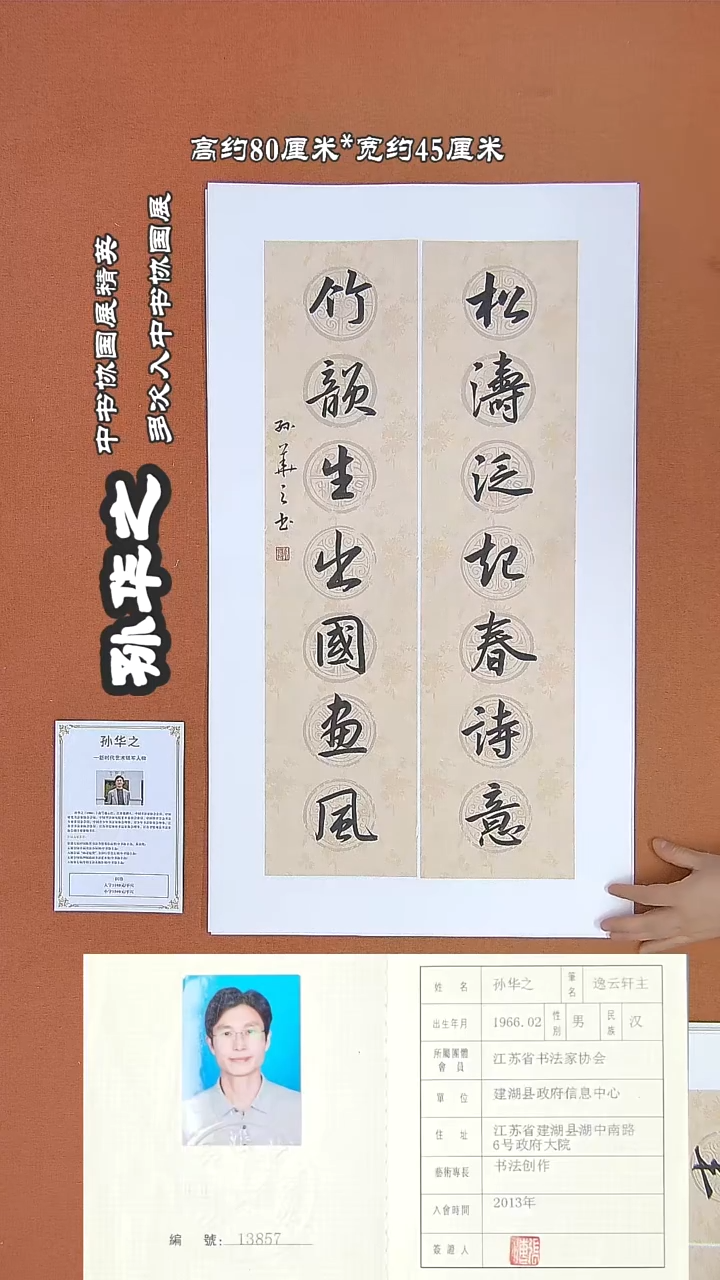 高约80厘米*宽约45厘米
多次入中书协国展
中书协国展精英
孙华之
松濤泛起春诗意
竹韻生出國画風
孙華之书
孙华之
姓 名 孙华之 筆名 逸云轩主
出生年月 1966.02 性别 男 民族 汉
所屬團體會員 江苏省书法家协会
單 位 建湖县政府信息中心
住 址 江苏省建湖县湖中南路6号政府大院
藝術專長 书法创作
入會時間 2013年
簽證人
編 號: 13857